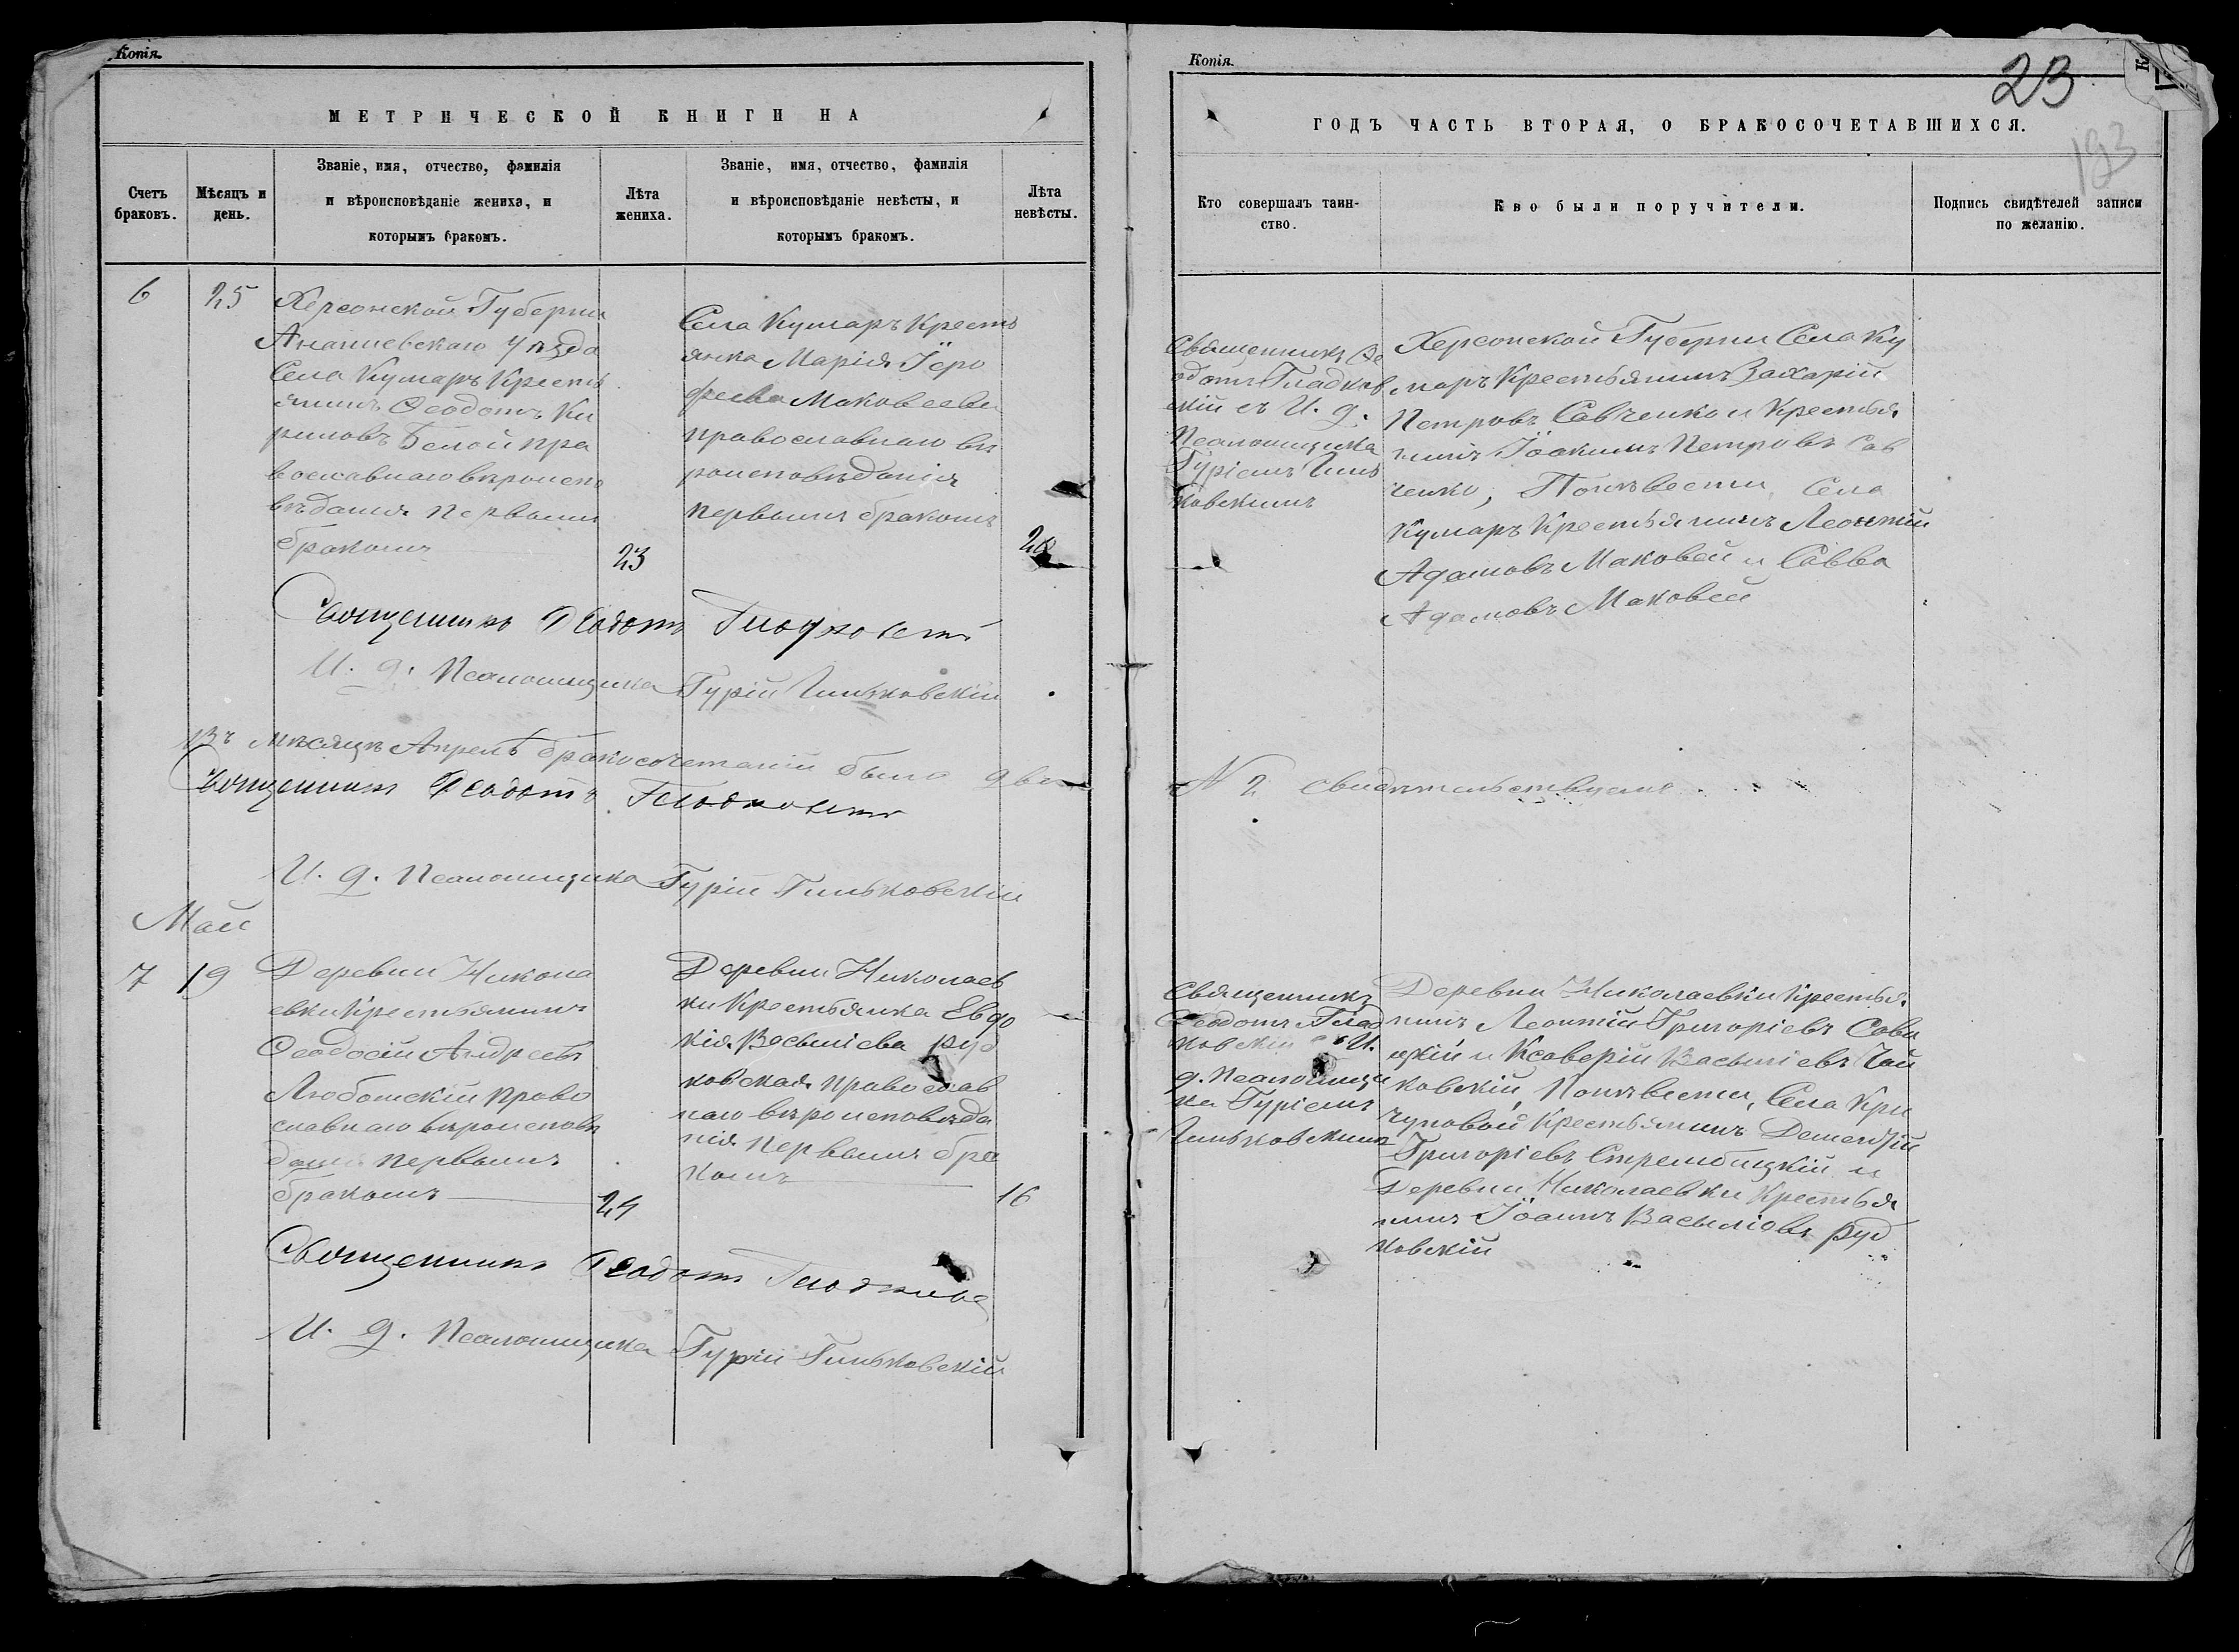 Копія.
МЕТРИЧЕСКОЙ КНИГИ НА
Счетъ браковъ.
Мѣсяцъ и день.
Званіе, имя, отчество, фамилія
и вѣроисповѣданіе жениха, и
которымъ бракомъ.
Лѣта жениха.
Званіе, имя, отчество, фамилія
и вѣроисповѣданіе невѣсты, и
которымъ бракомъ.
Лѣта невѣсты.
6
25
Херсонской Губерніи
Ананіевскаго Уѣзда
Села Кумаръ Кресть
янинъ Ѳеодотъ Ки
риловъ Белой пра
вославнаго вѣроиспо
вѣданія первымъ
бракомъ
23
Села Кумаръ Кресть
янка Марія Іеро
феева Маковеева
православнаго вѣ
роисповѣданія
первымъ бракомъ
Священникъ Ѳеодотъ Гладковскій
И. д. Псаломщика Гурій Гиньковскій
Въ мѣсяцѣ Апрелѣ бракосочетаній было два
Священникъ Ѳеодотъ Гладковскій
И. д. Псаломщика Гурій Гиньковскій
Май
7
19
Деревни Никола
евки Крестьянинъ
Ѳеодосій Андреевъ
Любомскій право
славнаго вѣроисповѣ
данія первымъ
бракомъ
24
Деревни Николаев
ки Крестьянка Евдо
кія Васьиліева Руд
ковская православ
наго вѣроисповѣда
нія первымъ бра
комъ
16
Священникъ Ѳеодотъ
И. д. Псаломщика Гурій Гиньковскій
Копія.
23
193
ГОДЪ ЧАСТЬ ВТОРАЯ, О БРАКОСОЧЕТАВШИХСЯ.
Кто совершалъ таин-
ство.
Кво были поручители.
Подпись свидѣтелей записи
по желанію.
Священникъ Ѳе
одотъ Гладков
скій съ И. д.
Псаломщика
Гуріемъ Гинь
ковскимъ
Херсонской Губерніи Села Ку
маръ Крестьянинъ Захарій
Петровъ Савченко и Крестья
нинъ Іоакимъ Петровъ Сав
ченко, По невѣсти, Села
Кумаръ Крестьянинъ Леонтій
Адамовъ Маковей и Савва
Адамовъ Маковей
N 2 свидѣтельствуемъ
Священникъ
Ѳеодотъ Глад
ковскій съ И.
д. Псаломщи
ка Гуріемъ
Гиньковскимъ
Деревни Николаевки Крестья
нинъ Леонтій Григоріевъ Сави
цкій и Ксаверій Васьиліевъ Чай
ковскій, По невѣсти, Села Кри
чуновой Крестьянинъ
Григоріевъ Стрембицкій и
Деревни Николаевки Крестья
нинъ Іоаннъ Васьиліовъ Руд
ковскій